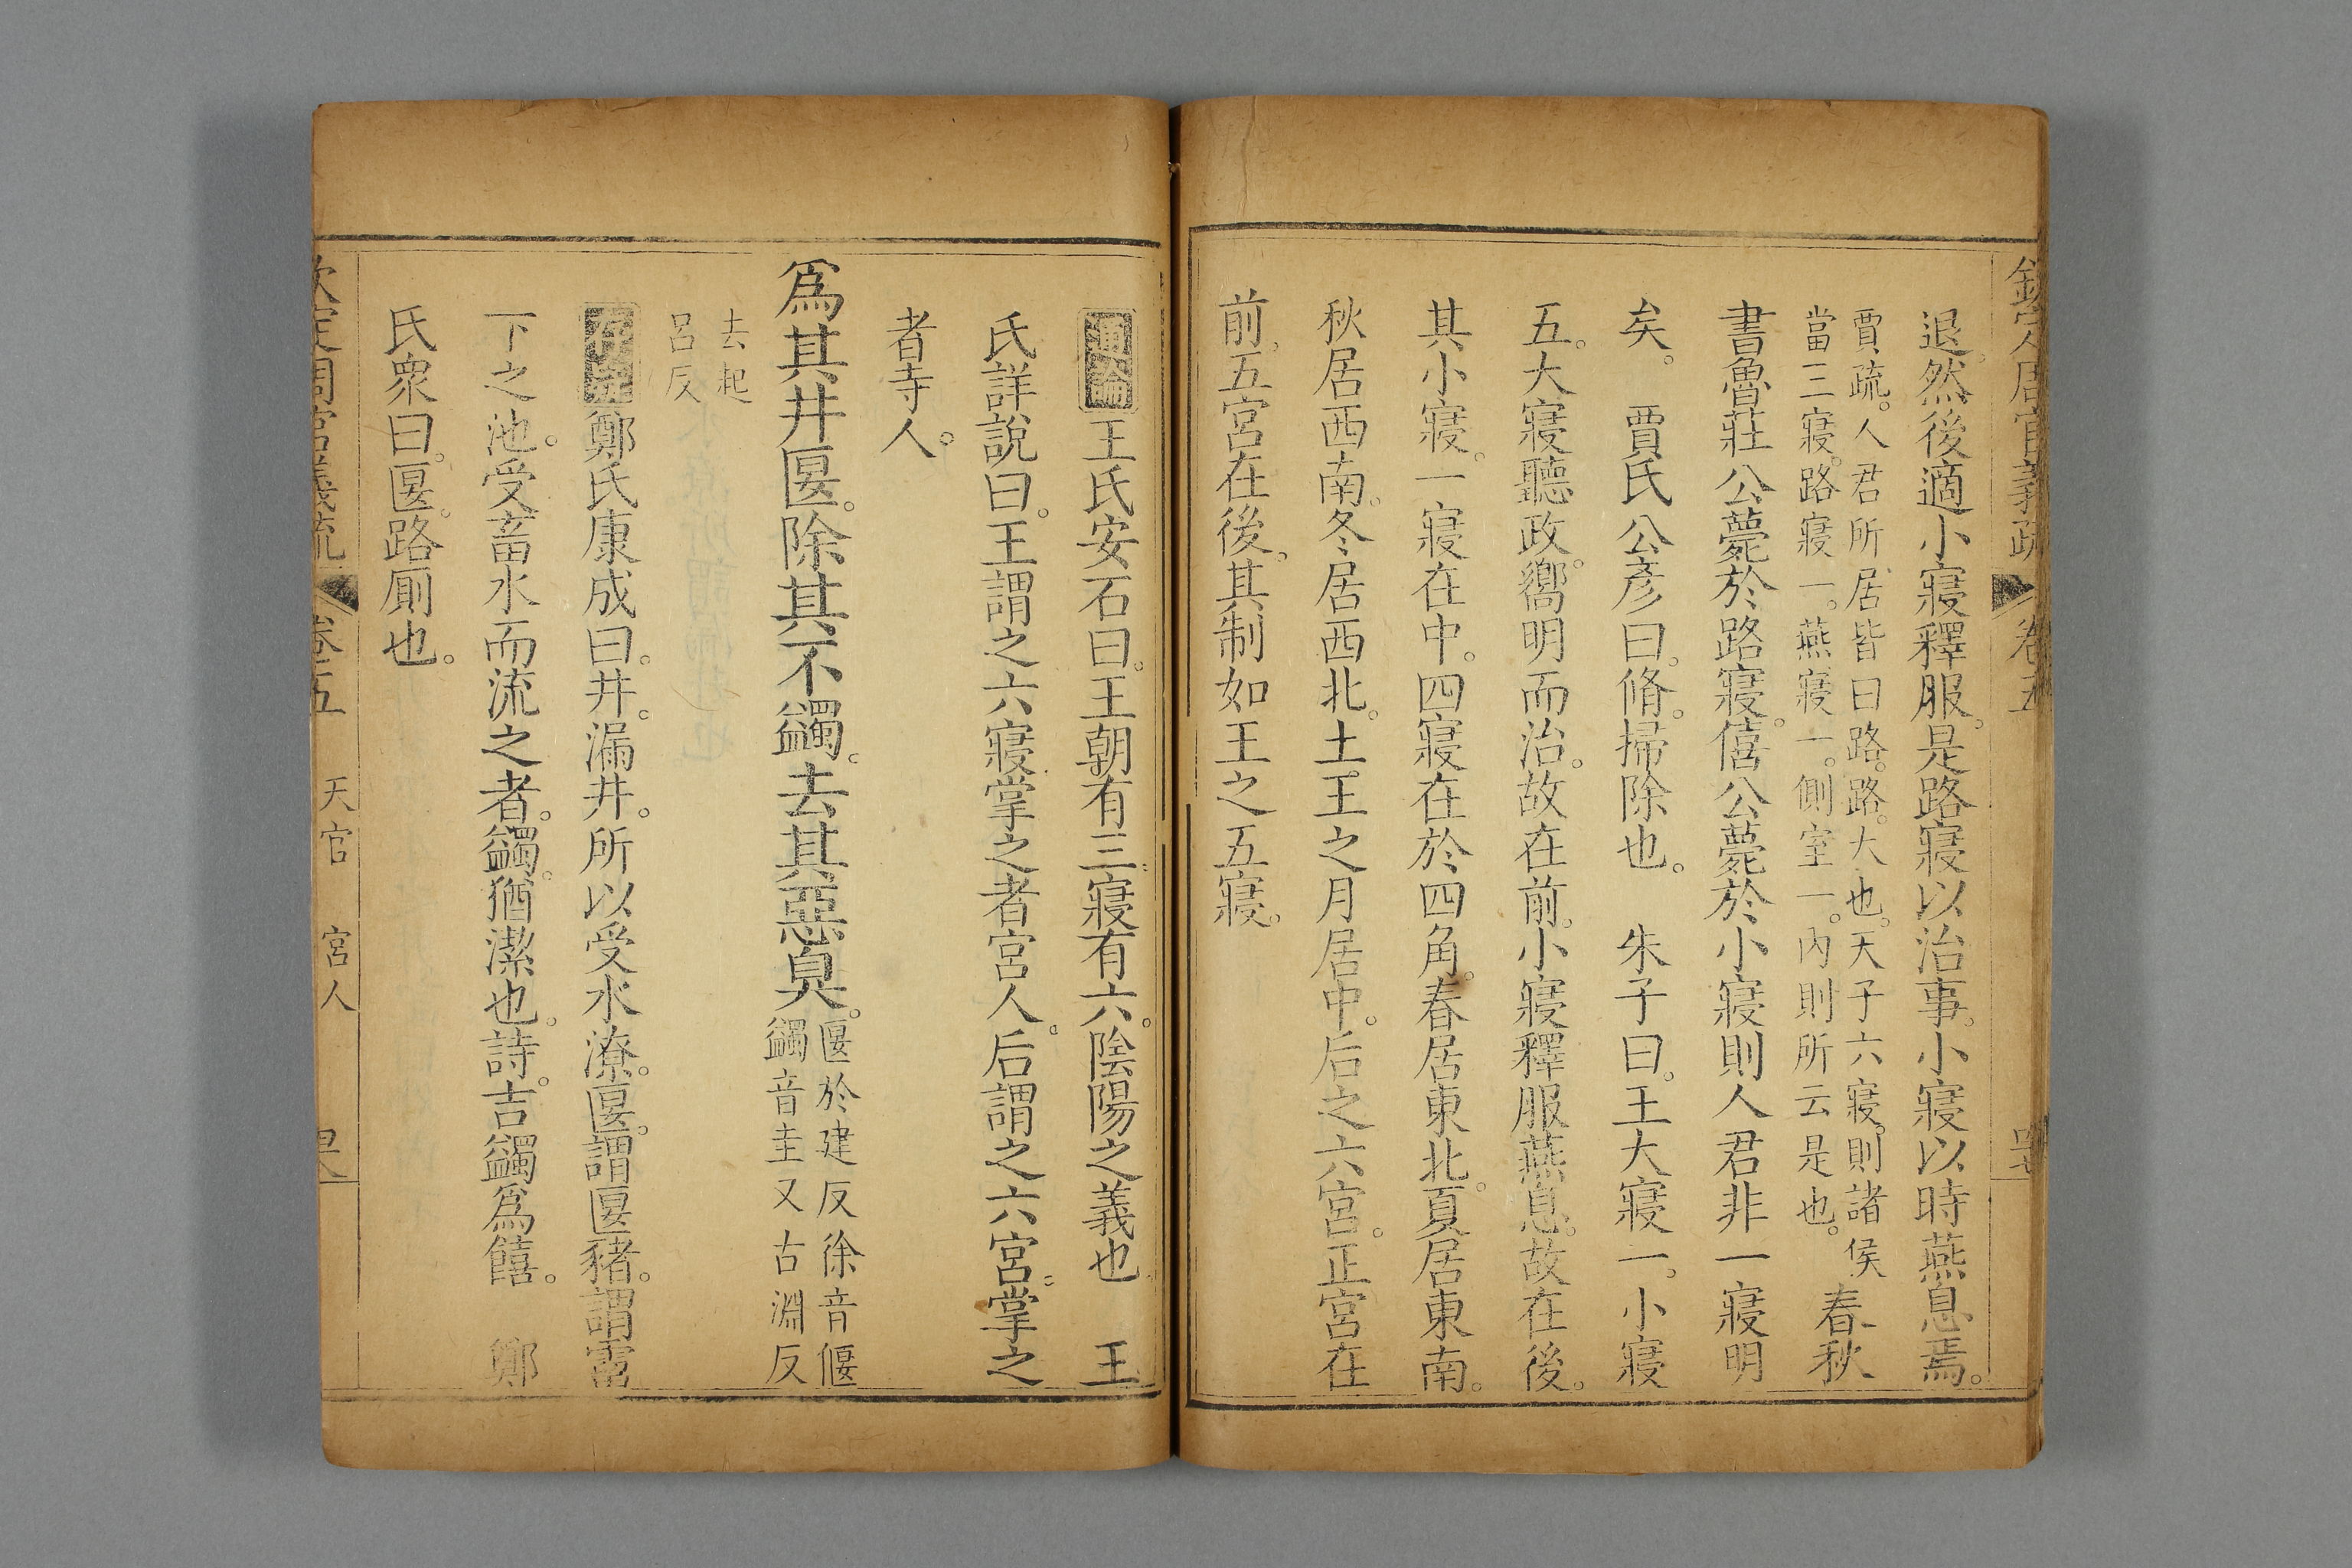 欽定周官義疏 卷五
退。然後適小寢釋服。是路寢以治事。小寢以時燕息焉。
賈疏。人君所居皆曰路。路。大也。天子六寢。則諸侯
當三寢。路寢一。燕寢一。側室一。內則所云是也。
春秋
書魯莊公薨於路寢。僖公薨於小寢則人君非一寢明
矣。 賈氏公彥曰。脩。掃除也。 朱子曰。王大寢一。小寢
五。大寢聽政。嚮明而治。故在前。小寢釋服燕息。故在後。
其小寢。一寢在中。四寢在於四角。春居東北。夏居東南。
秋居西南。冬居西北。土王之月居中。后之六宮。正宮在
前。五宮在後。其制如王之五寢。
通論王氏安石曰。王朝有三。寢有六。陰陽之義也 王
氏詳說曰。王謂之六寢掌之者宮人。后謂之六宮。掌之
者寺人。
為其井匽。除其不蠲。去其惡臭。
匽於建反徐音偃
蠲音圭又古淵反
去起
呂反
鄭氏康成曰。井。漏井。所以受水潦。匽。謂匽豬。謂霤
下之池。受畜水而流之者。蠲。猶潔也。詩。吉蠲為饎。 鄭
氏衆曰。匽。路廁也。
欽定周官義疏 卷五 天官 宮人